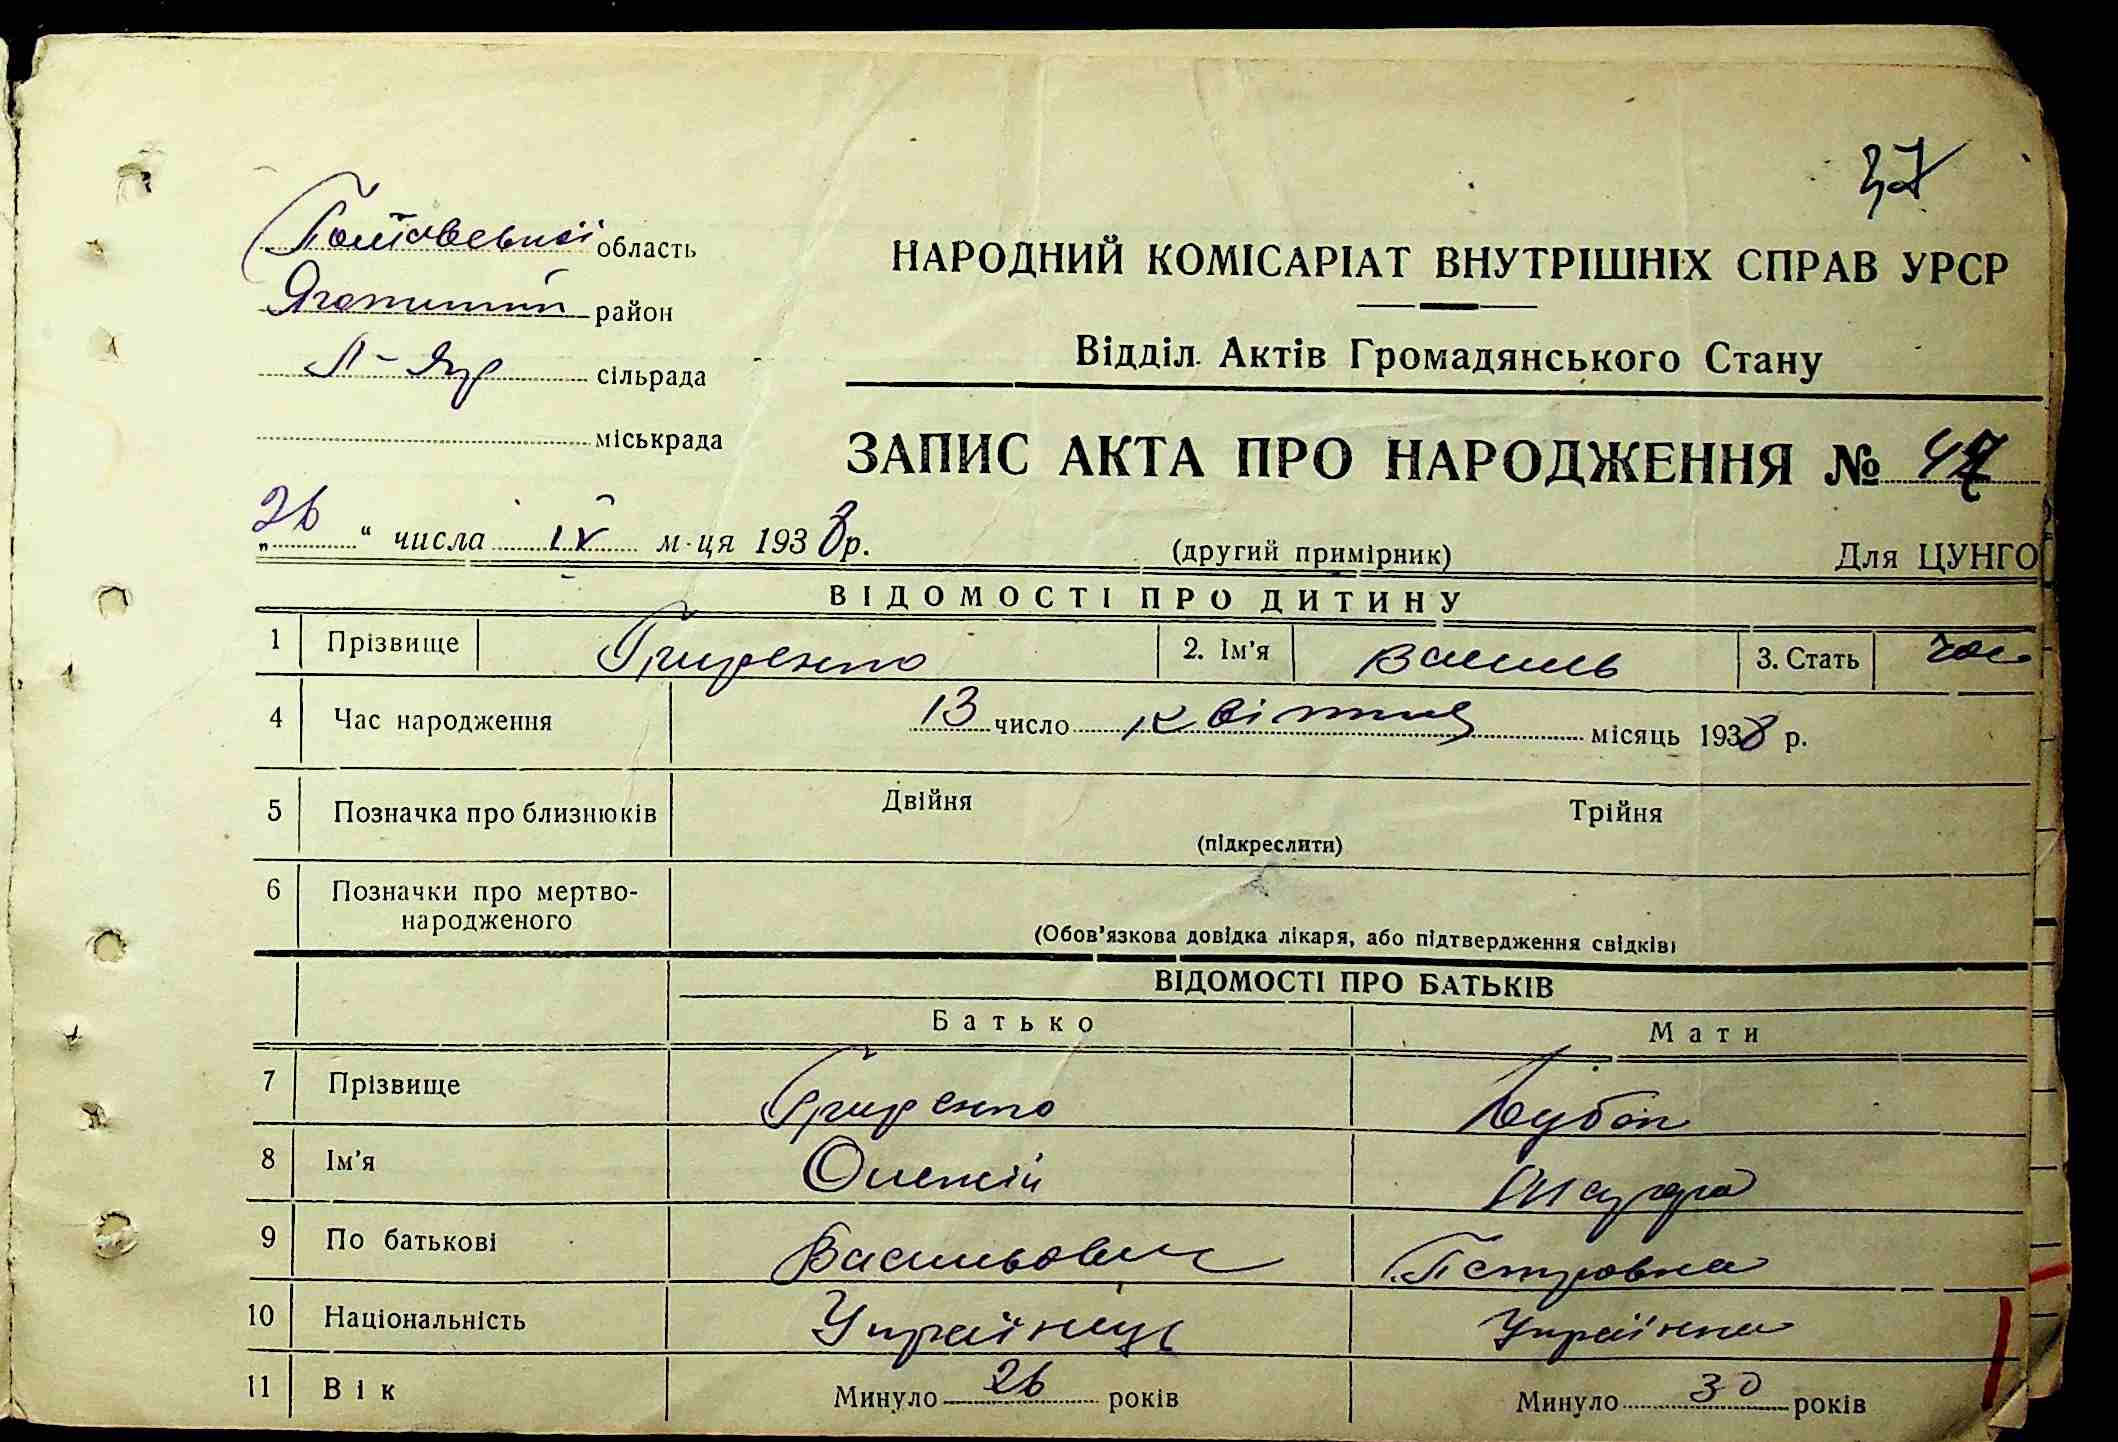 37
Полтавської область
Яготинський район
П-Яр сільрада
міськрада
НАРОДНИЙ КОМІСАРІАТ ВНУТРІШНІХ СПРАВ УРСР
Відділ Актів Громадянського Стану
ЗАПИС АКТА ПРО НАРОДЖЕННЯ № 47
„26“ числа IV м-ця 1938 р. (другий примірник) Для ЦУНГО
ВІДОМОСТІ ПРО ДИТИНУ
1 Прізвище Гриценко 2. Ім'я Василь 3. Стать чол
4 Час народження 13 число квітня місяць 1938 р.
5 Позначка про близнюків Двійня Трійня
(підкреслити)
6 Позначки про мертво-
народженого
(Обов'язкова довідка лікаря, або підтвердження свідків)
ВІДОМОСТІ ПРО БАТЬКІВ
Батько Мати
7 Прізвище Гриценко
8 Ім'я Олексій
9 По батькові Васильович Петровна
10 Національність Українець Українка
11 Вік Минуло 26 років Минуло 30 років